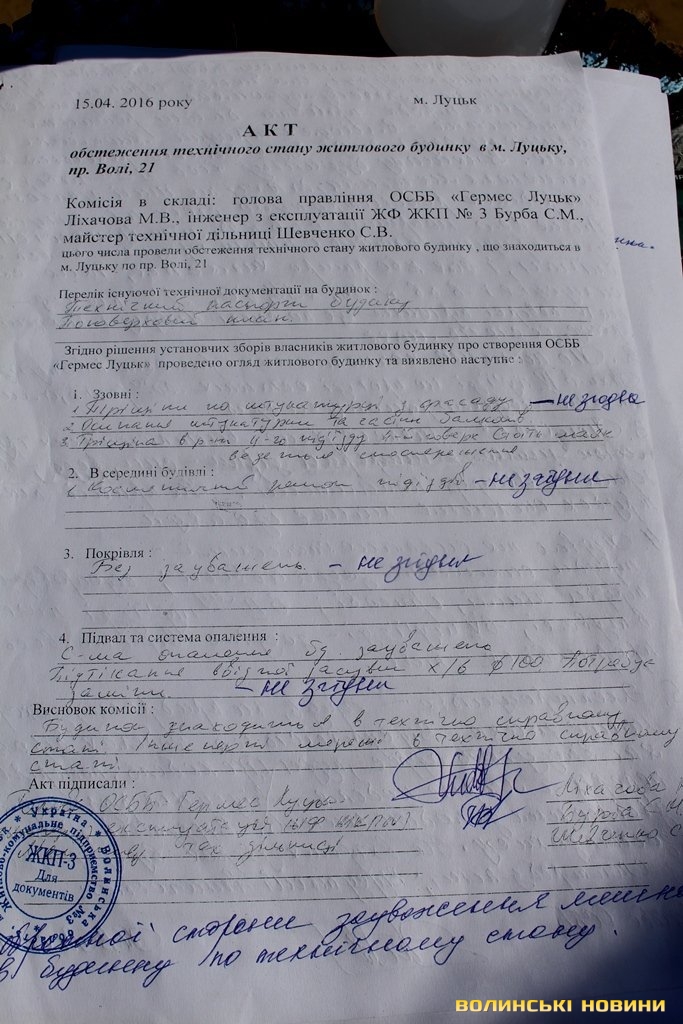 15.04. 2016 року м. Луцьк
А К Т
обстеження технічного стану житлового будинку в м. Луцьку,
пр. Волі, 21
Комісія в складі: голова правління ОСББ «Гермес Луцьк»
Ліхачова М.В., інженер з експлуатації ЖФ ЖКП № 3 Бурба С.М.,
майстер технічної дільниці Шевченко С.В.
цього числа провели обстеження технічного стану житлового будинку , що знаходиться в
м. Луцьку по пр. Волі, 21
Перелік існуючої технічної документації на будинок :
Технічний паспорт будинку
Поповерховий план.
Згідно рішення установчих зборів власників житлового будинку про створення ОСББ
«Гермес Луцьк» проведено огляд житлового будинку та виявлено наступне :
1. Ззовні :
1 Тріщини по штукатурці з фасаду — не згодна
2 Осипання штукатурки та балконів
3. Тріщина в 4-го під'їзду поверх маяк
ведеться спостереження
2. В середині будівлі :
1 Косметичний ремонт під'їздів – не згідни
3. Покрівля :
Без зауважень – не згідни
4. Підвал та система опалення :
С-ма опалення без зауважень
Підтікання ввідної засувки х/в ф 100 Потребує
заміни. – не згідни
Висновок комісії :
Будинок знаходиться в технічно справному
стані Інженерні мережі в технічно справному
стані
Акт підписали :
ОСББ Гермес Луцьк Ліхачова
експлуатації ЖФ ЖКП №3 Бурба С.
тех дільниці Шевченко С
Україна * Волинська
Житлово-комунальне підприємство №3
ЖКП-3
Для
документів
сторони зауваження
в будинку по технічному стану.
ВОЛИНСЬКІ НОВИНИ